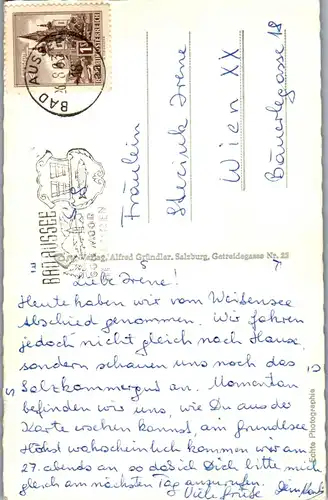 BAD AUSSEE
26.8.63
REPUBLIK ÖSTERREICH
BAD AUSSEE
MOOR
Fräulein
Irene
Wien XX
Bäuerlegasse 18
Verlag, Alfred Gründler, Salzburg, Getreidegasse Nr. 22
Echte Photographie
Liebe Irene!
Heute haben wir vom Weißensee
Abschied genommen. Wir fahren
jedoch nicht gleich nach Hause,
sondern schauen uns noch das
Salzkammergut an. Momentan
befinden wir uns, wie Du aus der
Karte sehen kannst, am Grundlsee
Höchst wahrscheinlich kommen wir am
27. abends an, so daß ich Dich bitte mich
gleich am nächsten Tag anzurufen.
Viele Grüße